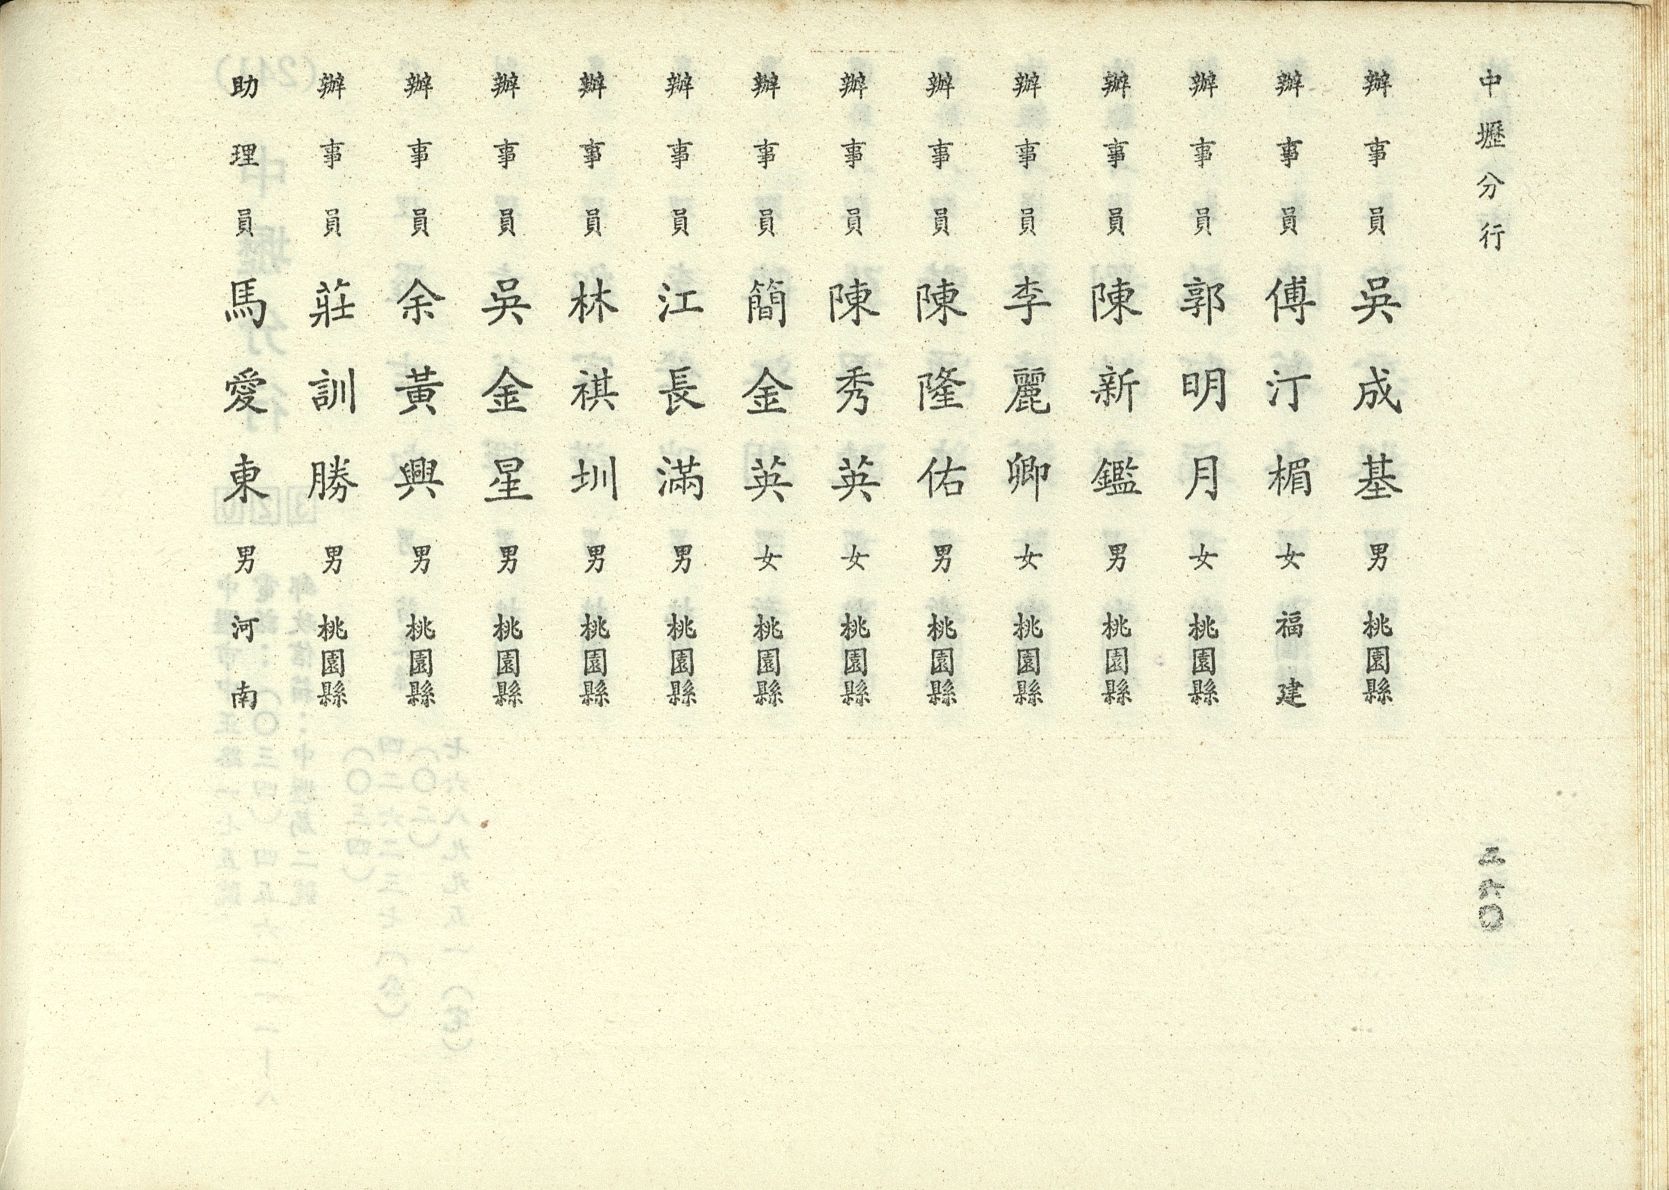 中壢分行
三六〇
辦事員吳成基男桃園縣
辦事員傅汀楣女福建
辦事員郭明月女桃園縣
辦事員陳新鑑男桃園縣
辦事員李麗卿女桃園縣
辦事員陳隆佑男桃園縣
辦事員陳秀英女桃園縣
辦事員簡金英女桃園縣
辦事員江長滿男桃園縣
辦事員林祺圳男桃園縣
辦事員吳金星男桃園縣
辦事員余黃興男桃園縣
辦事員莊訓勝男桃園縣
助理員馬愛東男河南